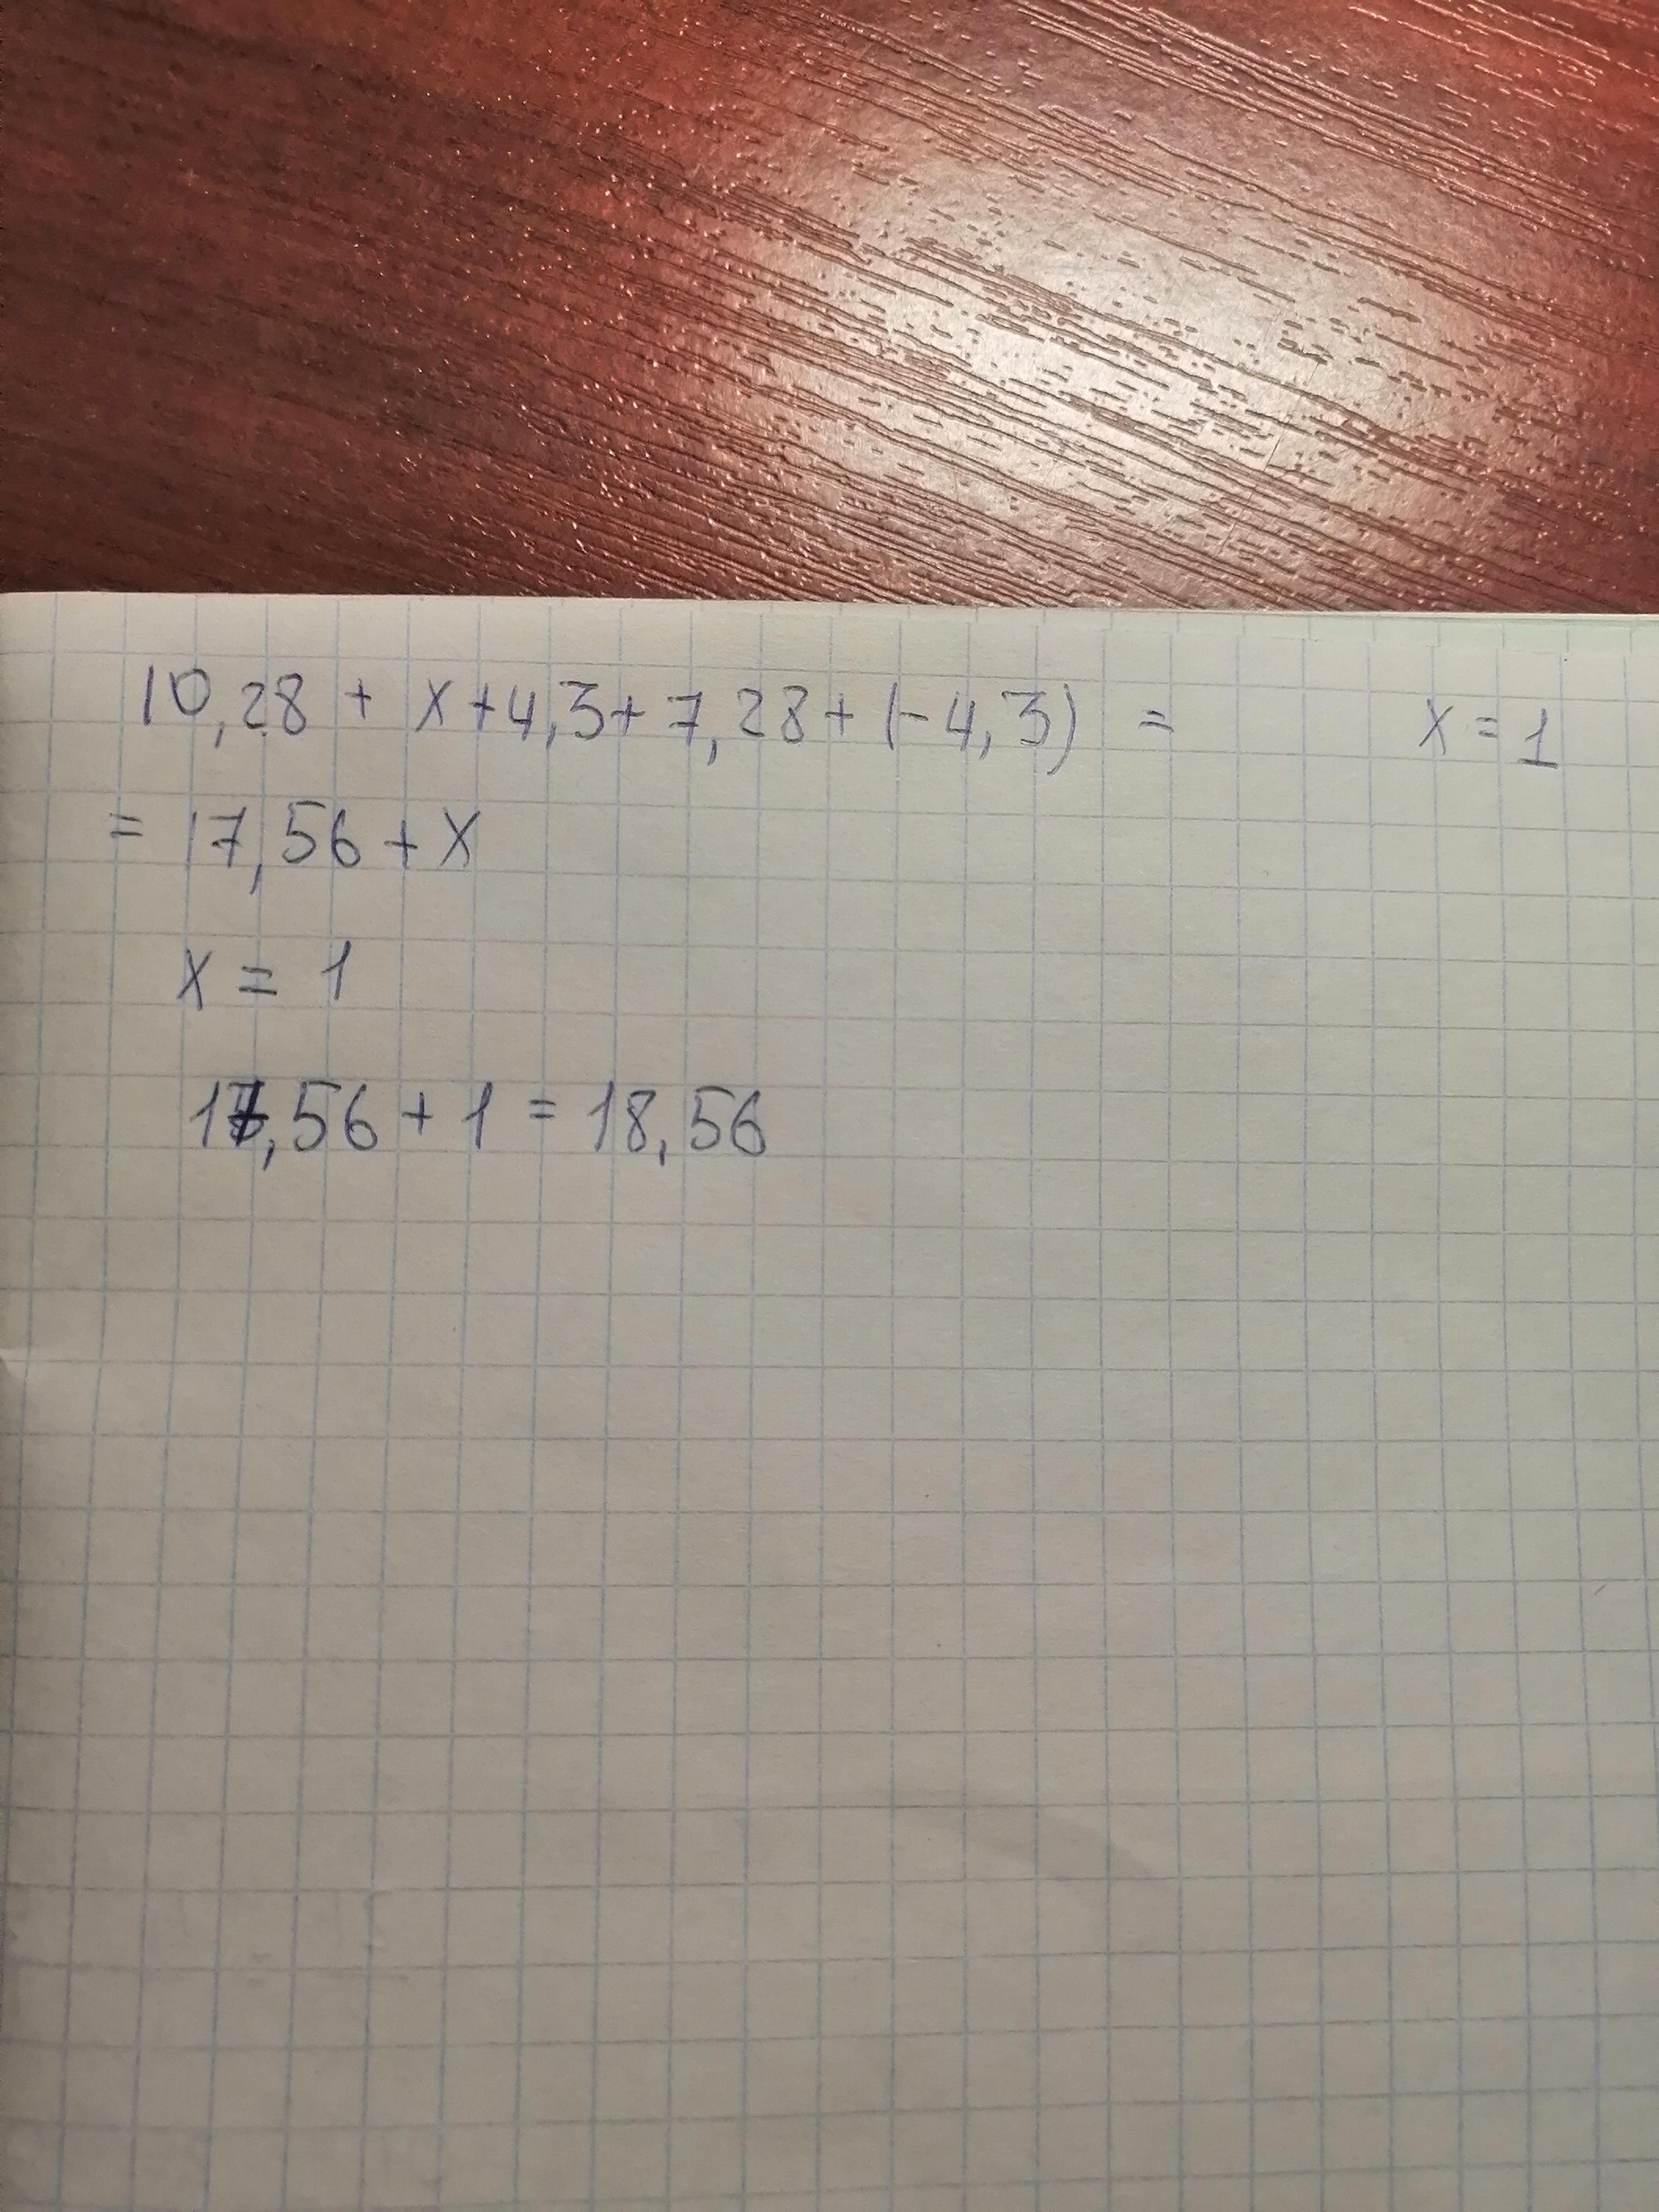 10,28 + x + 4,3 + 7,28 + (-4,3) = x = 1
= 17,56 + x
x = 1
17,56 + 1 = 18,56